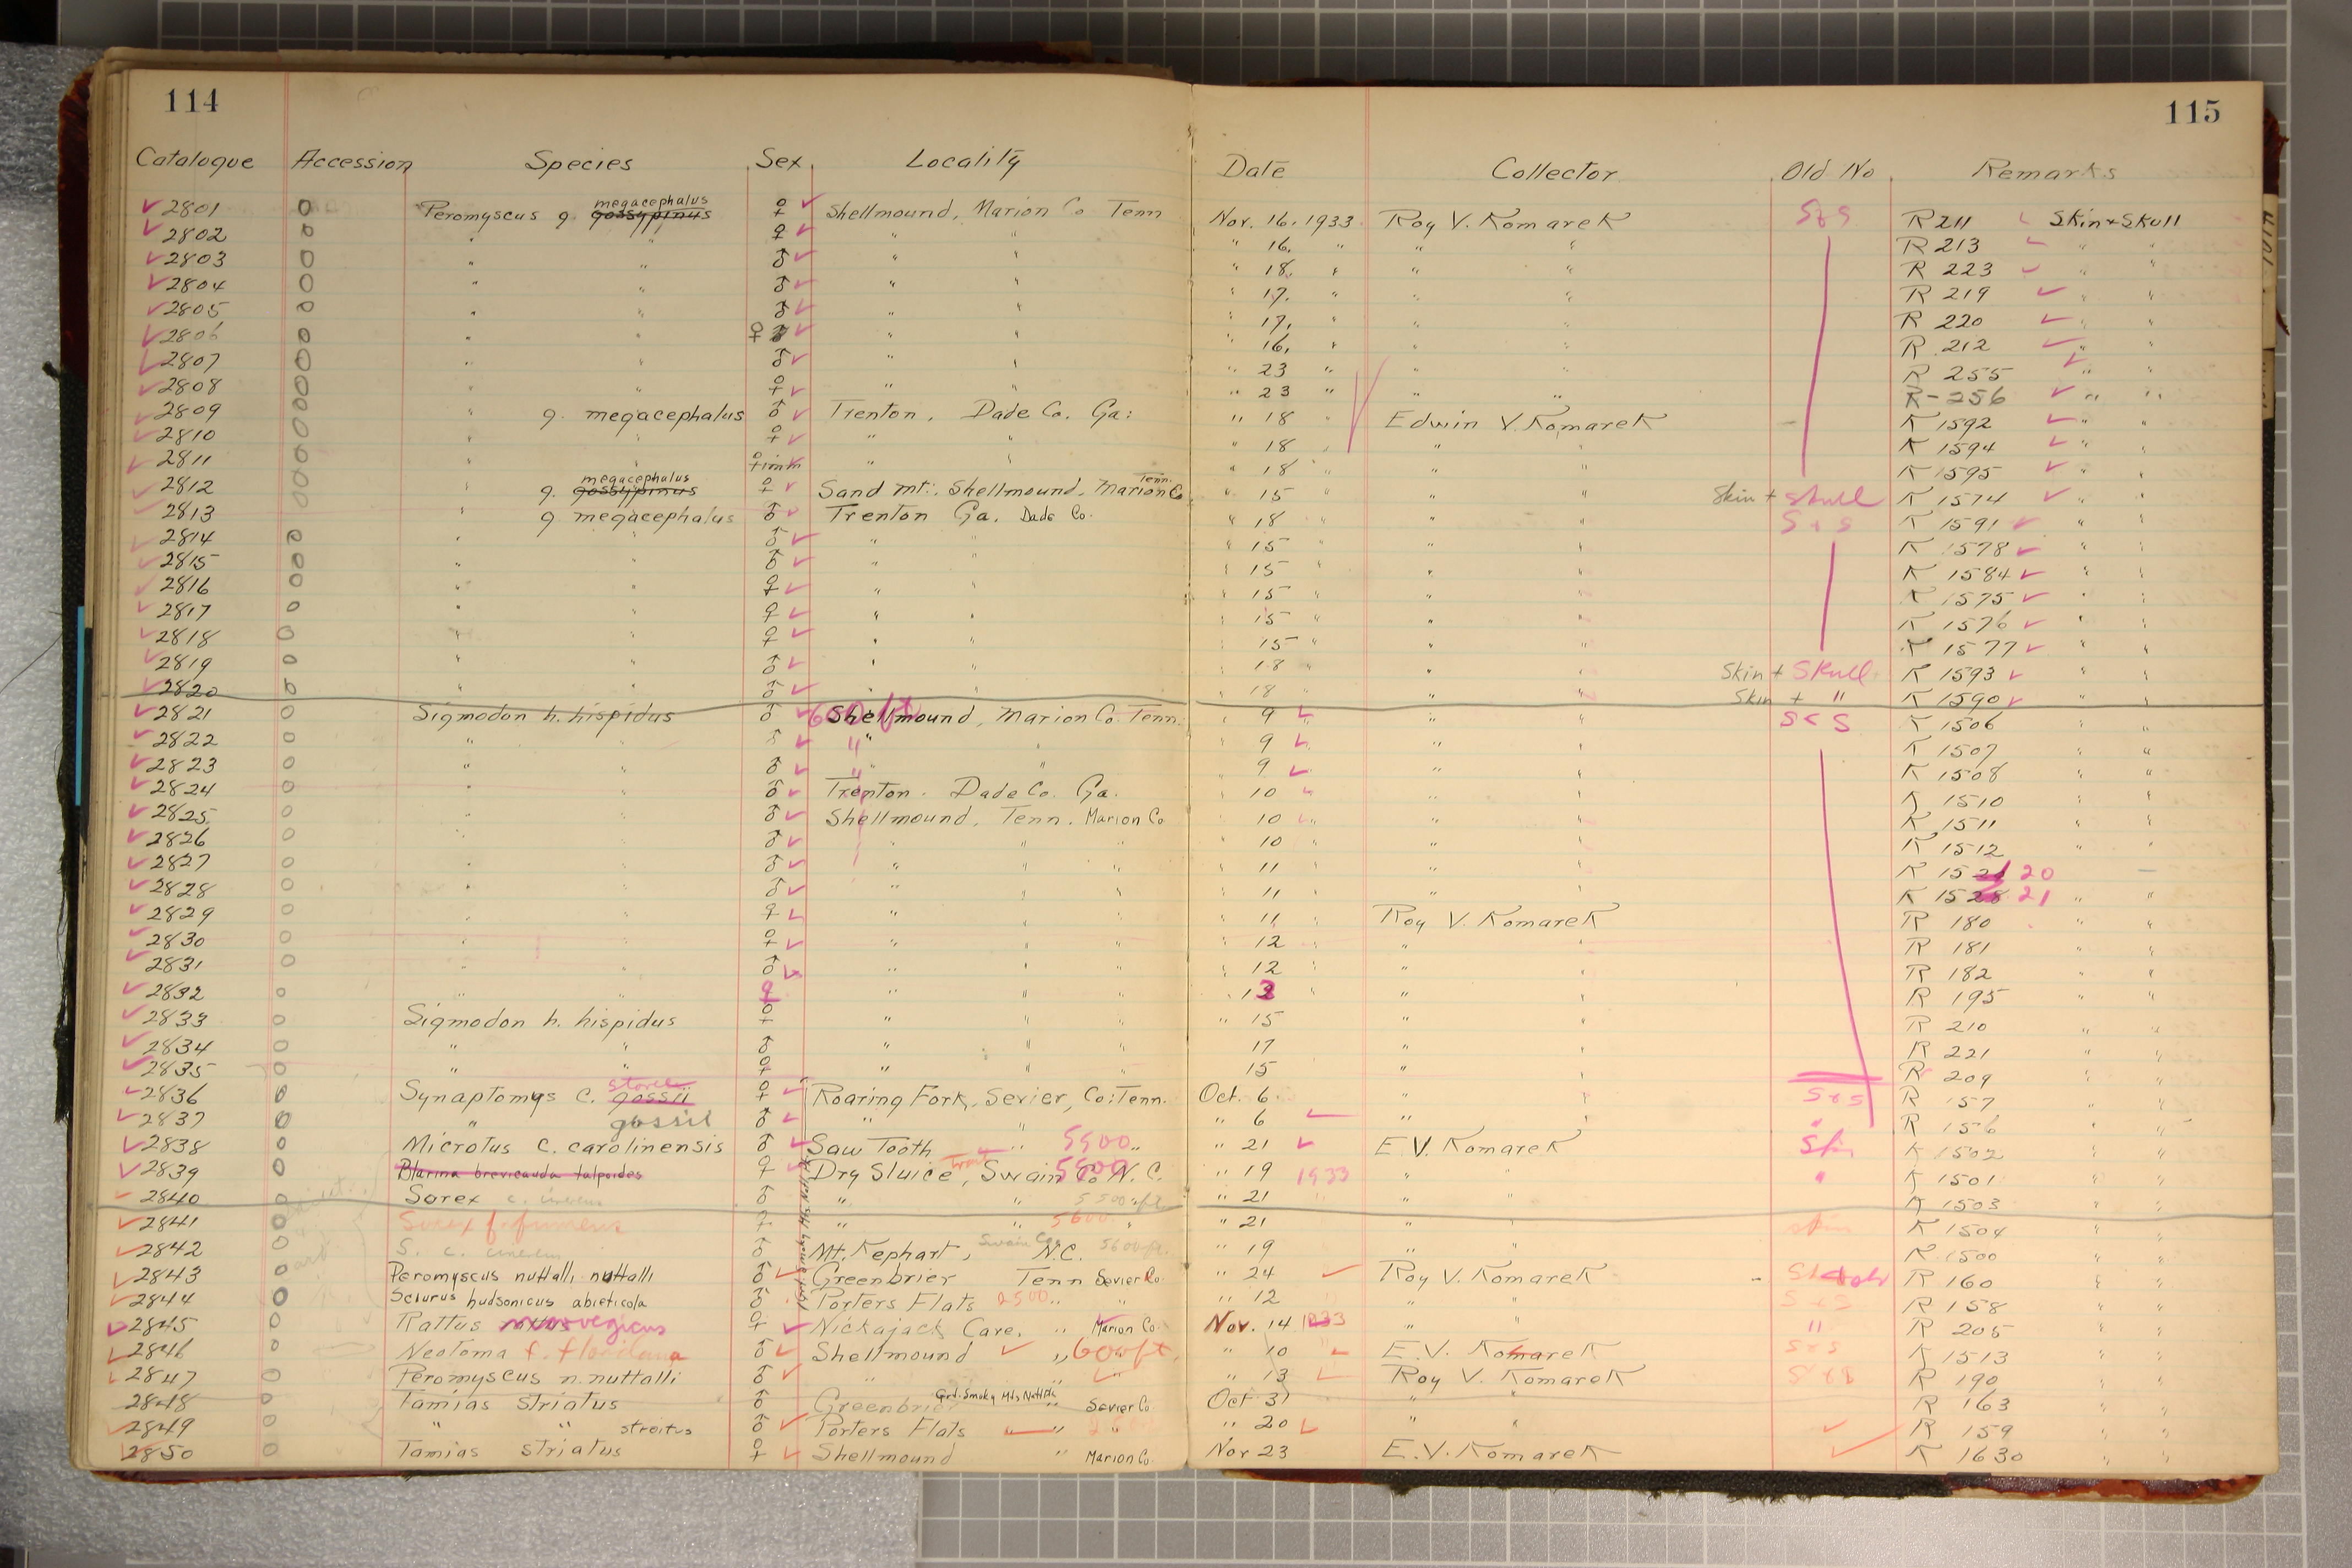 114
115
Catalogue Accession Species Sex Locality Date Collector Old No Remarks
megacephalus
2801 0 Peromyscus g. gossypinus ♀ Shellmound, Marion Co Tenn Nov. 16, 1933 Roy V. Komarek S&S R 211 Skin + Skull
2802 0 " " ♀ " " " 16, " " " R 213 " "
2803 0 " " ♂ " " " 18, " " " R 223 " "
2804 0 " " ♂ " " " 17, " " " R 219 " "
2805 0 " " ♂ " " " 17, " " " R 220 " "
2806 0 " " ♀ " " " 16, " " " R 212 " "
2807 0 " " ♂ " " " 23 " " " R 255 " "
2808 0 " " ♀ " " " 23 " " " R-256 " "
2809 0 " g. megacephalus ♂ Trenton, Dade Co. Ga: " 18 " Edwin V. Komarek K 1592 " "
2810 0 " " ♀ " " " 18 " " " K 1594 " "
2811 0 " " ♀imm " " " 18 " " " K 1595 " "
megacephalus Tenn.
2812 0 " g. gossypinus ♀ Sand Mt., Shellmound, Marion Co. " 15 " " " Skin + Skull K 1574 " "
2813 0 " g. megacephalus ♂ Trenton Ga. Dade Co. " 18 " " " S + S K 1591 " "
2814 0 " " ♂ " " " 15 " " " K 1578 " "
2815 0 " " ♂ " " " 15 " " " K 1584 " "
2816 0 " " ♀ " " " 15 " " " K 1575 " "
2817 0 " " ♀ " " " 15 " " " K 1576 " "
2818 0 " " ♀ " " " 15 " " " K 1577 " "
2819 0 " " ♂ " " " 18 " " " Skin + Skull K 1593 " "
2820 0 " " ♂ " " " 18 " " " Skin + " K 1590 " "
2821 0 Sigmodon h. hispidus ♂ 600 ft Shellmound, Marion Co. Tenn. " 9 " " S & S K 1506
2822 0 " " ♂ " " " 9 " " K 1507 " "
2823 0 " " ♂ " " " 9 " " K 1508 " "
2824 0 " " ♂ Trenton. Dade Co. Ga. " 10 " " " K 1510 " "
2825 0 " " ♂ Shellmound, Tenn. Marion Co " 10 " " " K 1511 " "
2826 0 " " ♂ " " " " 10 " " " K 1512 " "
2827 0 " " ♂ " " " " 11 " " " K 15 20
2828 0 " " ♂ " " " " 11 " " " K 1528 21 " "
2829 0 " " ♀ " " " " 11 " Roy V. Komarek R 180 " "
2830 0 " " ♀ " " " " 12 " " " R 181 " "
2831 0 " " ♂ " " " " 12 " " " R 182 " "
2832 0 " " ♀ " " " " 13 " " " R 195 " "
2833 0 Sigmodon h. hispidus ♀ " " " " 15 " " R 210 " "
2834 0 " " ♂ " " " 17 " " R 221 " "
2835 0 " " ♀ " " " 15 " " R 209 " "
stonei
2836 0 Synaptomys c. gossii ♀ Roaring Fork, Sevier, Co: Tenn. Oct. 6 " " S & S R 157 " "
2837 0 " gossii ♂ " " " 6 " " " R 156 " "
2838 0 Microtus c. carolinensis ♂ Saw Tooth " 5500 " " 21 E. V. Komarek Skin K 1502 " "
2839 0 Blarina brevicauda talpoides ♀ Dry Sluice Trail, Swain Co. N. C. " 19 1933 " " " K 1501 " "
2840 0 Sorex c. cinereus ♂ " " 5500 ft " 21 " " K 1503 " "
2841 0 Sorex f. fumeus ♀ " " 5600 " " 21 " " skin K 1504 " "
2842 0 S. c. cinereus ♂ Mt. Kephart, Swain Co. N.C. 5600 ft. " 19 " " K 1500 " "
2843 0 Peromyscus nuttalli nuttalli ♂ Greenbrier Tenn Sevier Co. " 24 Roy V. Komarek R 160 " "
2844 0 Sciurus hudsonicus abieticola ♂ Porters Flats 2500 " " " 12 " " S & S R 158 " "
2845 0 Rattus norvegicus ♀ Nickajack Cave, " Marion Co. Nov. 14 1933 " " " R 205 " "
2846 0 Neotoma f. floridana ♂ Shellmound " 600 ft. " 10 E. V. Komarek S & S K 1513 " "
2847 0 Peromyscus n. nuttalli ♂ " " " 13 Roy V. Komarek S & S R 190 " "
2848 0 Tamias striatus ♂ Greenbrier Grt. Smoky Mts. Natl Pk " Sevier Co. Oct 31 " " R 163 " "
2849 0 " " streitus ♂ Porters Flats " " " 20 " " R 159 " "
2850 0 Tamias striatus ♀ Shellmound " Marion Co. Nov 23 E. V. Komarek K 1630 " "